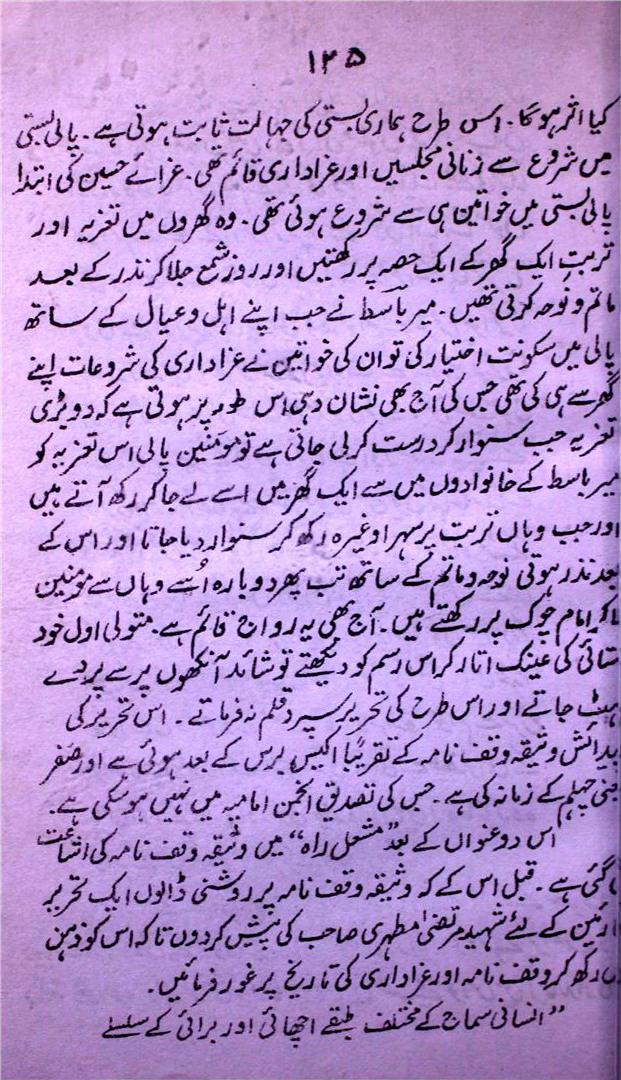 ۱۲۵
کیا اثر ہوگا۔ اس طرح ہماری بستی کی جہالت ثابت ہوتی ہے۔ پالی بستی
میں شروع سے زنانی مجلسیں اور عزاداری قائم تھی۔ عزائے حسین کی ابتدا
پالی بستی میں خواتین ہی سے شروع ہوئی تھی۔ وہ گھروں میں تعزیہ اور
تربت ایک گھر کے ایک حصہ پر رکھتیں اور روز شمع جلا کر نذر کے بعد
ماتم و نوحہ کرتی تھیں۔ میر باسط نے جب اپنے اہل و عیال کے ساتھ
پالی میں سکونت اختیار کی تو ان کی خواتین نے عزاداری کی شروعات اپنے
گھر سے ہی کی تھی جس کی آج بھی نشان دہی اس طور پر ہوتی ہے کہ دو بڑی
تعزیہ جب سنوار کر درست کر لی جاتی ہے تو مومنین پالی اس تعزیہ کو
میر باسط کے خانوادوں میں سے ایک گھر میں اسے لے جا کر رکھ آتے ہیں
اور جب وہاں تربت پر سہرا وغیرہ رکھ کر سنوار دیا جاتا اور اس کے
بعد نذر ہوتی نوحہ و ماتم کے ساتھ تب پھر دوبارہ اُسے وہاں سے مومنین
لا کر امام چوک پر رکھتے ہیں۔ آج بھی یہ رواج قائم ہے۔ متولی اول خود
ستائی کی عینک اتار کر اس رسم کو دیکھتے تو شائد آنکھوں پر سے پردے
ہٹ جاتے اور اس طرح کی تحریر سپرد قلم نہ فرماتے۔ اس تحریر کی
پیدائش وثیقہ وقف نامہ کے تقریباً اکیس برس کے بعد ہوئی ہے اور صفر
یعنی چہلم کے زمانہ کی ہے۔ جس کی تصدیق انجمن امامیہ میں نہیں ہو سکی ہے۔
اس دو عنواں کے بعد "مشعل راہ" میں وثیقہ وقف نامہ کی اشاعت
کی گئی ہے۔ قبل اس کے کہ وثیقہ وقف نامہ پر روشنی ڈالوں ایک تحریر
قارئین کے لئے شہید مرتضیٰ مطہری صاحب کی پیش کر دوں تاکہ اس کو ذہن
میں رکھ کر وقف نامہ اور عزاداری کی تاریخ پر غور فرمائیں۔
"انسانی سماج کے مختلف طبقے اچھائی اور برائی کے سلسلے